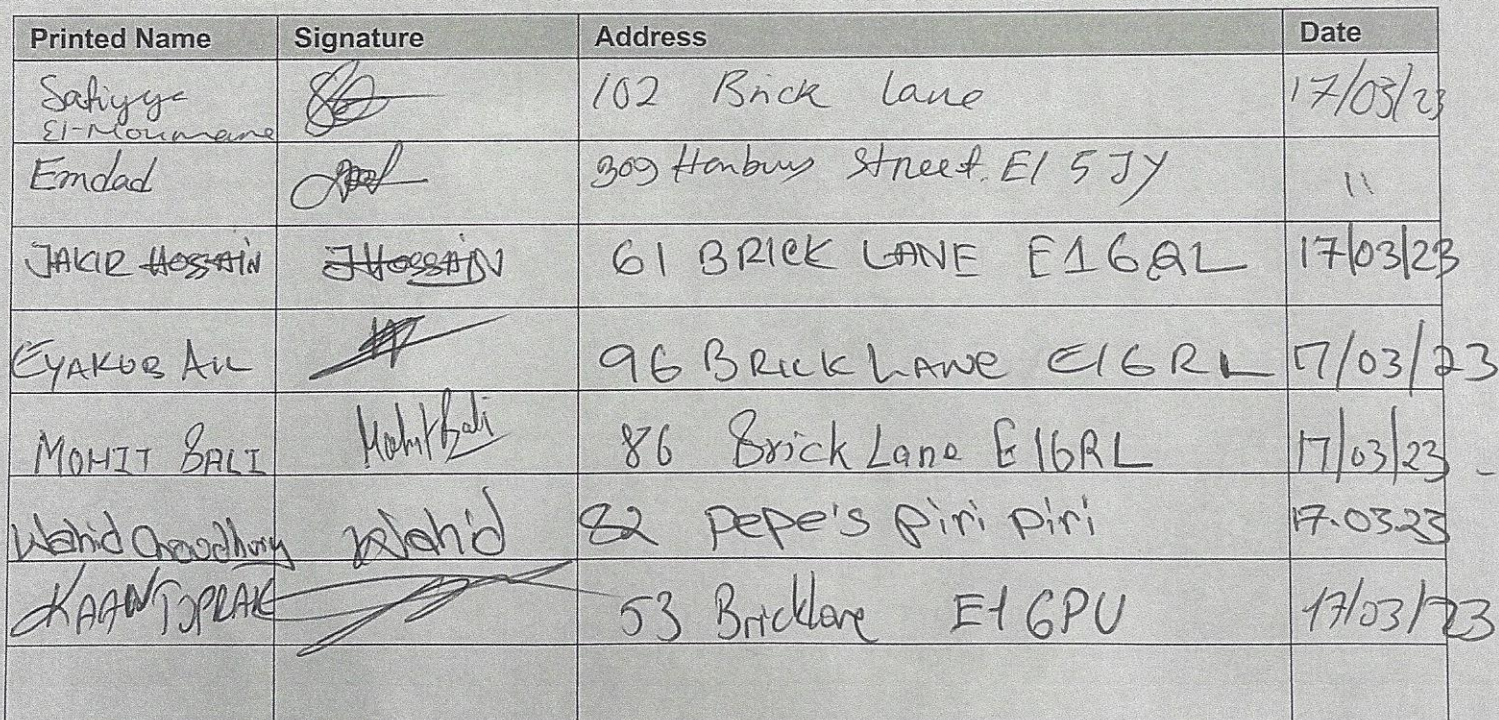 Printed Name Signature Address Date
Safiyya 102 Brick Lane 17/03/23
El-Moumane
Emdad 309 Hanbury Street. E1 5JY 11
JAKIR HOSSAIN JHOSSAIN 61 BRICK LANE E1 6QL 17/03/23
EYAKUB ALI 96 BRICK LANE E1 6RL 17/03/23
MOHIT BALI Mohit Bali 86 Brick Lane E1 6RL 17/03/23
Wahid Chowdhury Wahid 82 Pepe's Piri Piri 17.03.23
KAAN TOPRAK 53 Bricklane E1 6PU 17/03/23